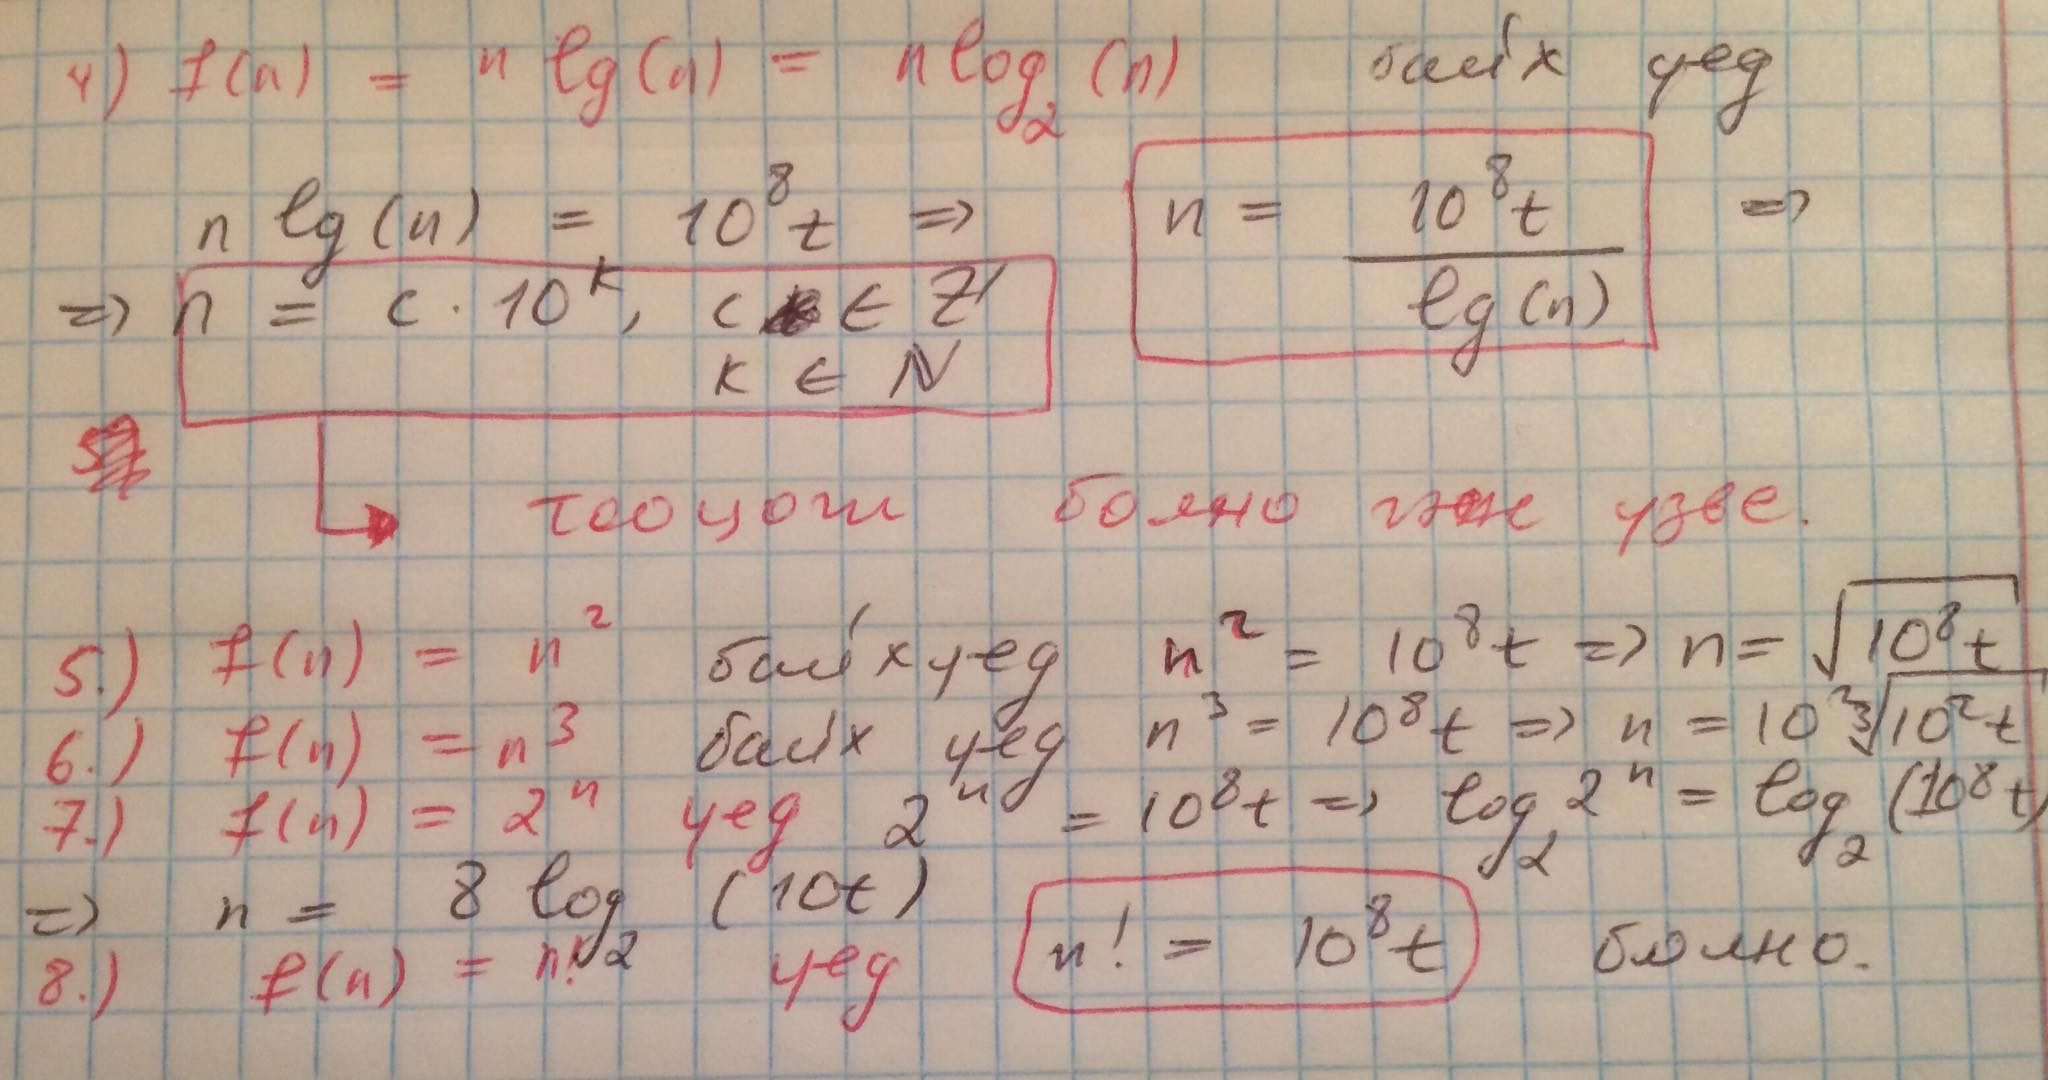 4) f(n) = n lg(n) = n log₂(n) байх үед
n lg(n) = 10⁸t => n = 10⁸t / lg(n) =>
=> n = c · 10ᵏ, c ∈ ℤ
k ∈ ℕ
тооцоги болно гэж үзве.
5.) f(n) = n² байх үед n² = 10⁸t => n = √10⁸t
6.) f(n) = n³ байх үед n³ = 10⁸t => n = 10² ³√10²t
7.) f(n) = 2ⁿ үед 2ⁿ = 10⁸t => log₂ 2ⁿ = log₂ (10⁸t)
=> n = 8 log₂ (10t)
8.) f(n) = n! үед n! = 10⁸t болно.